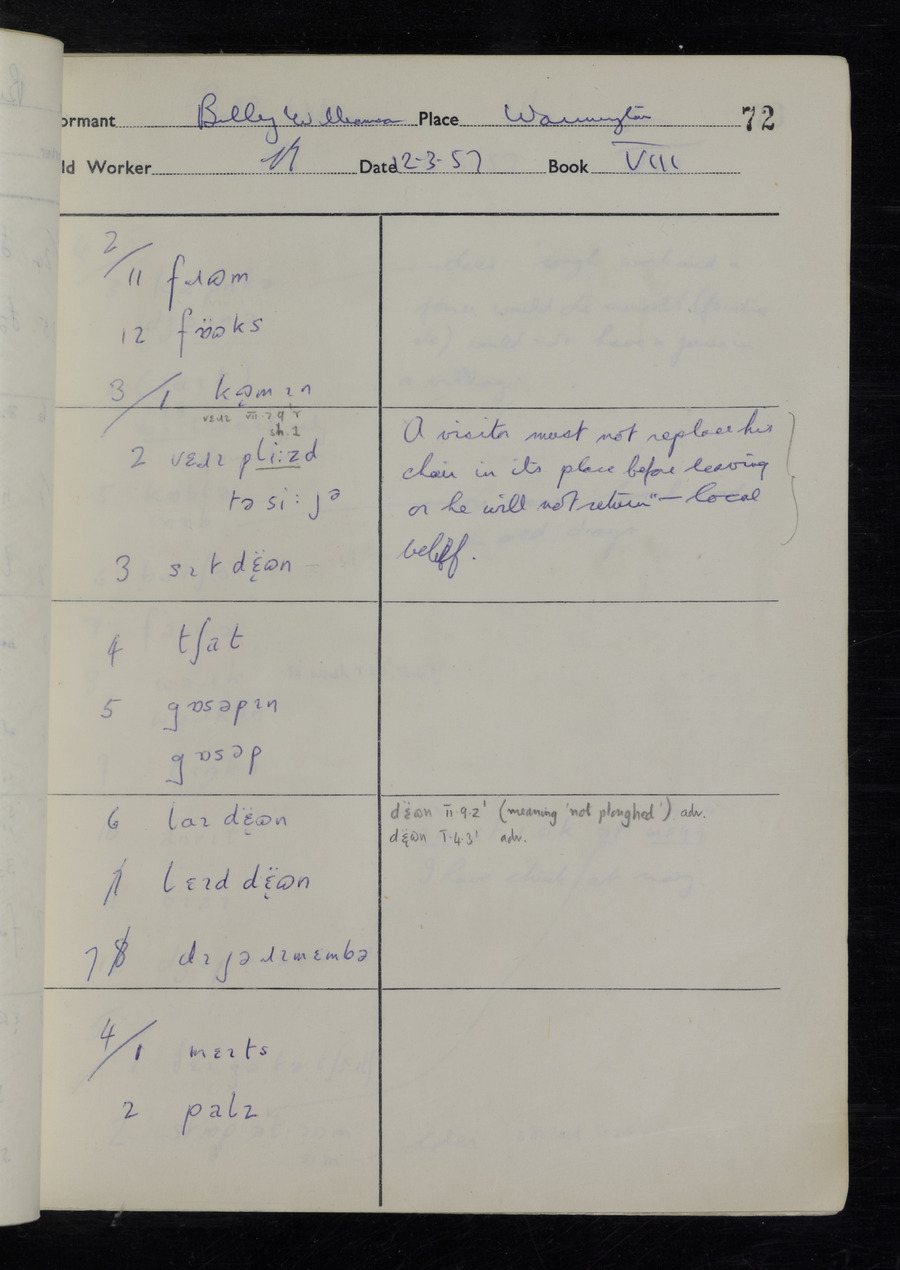 ormant Billy Williamson Place Warmington 72
ld Worker Date 12-3-57 Book VIII
2/11 fɹɷm
12 fɷ̈ɷks
3/1 kɷ̣mɪn
vɛɹɪ VII.7.9
sh.1
2 vɛɹɪ pli:zd
tə si: jə
3 sɪt dɛ̣̈ɷn
4 tʃat
5 gɒsəpɪn
gɒsəp
6 laɪ dɛ̣̈ɷn
lɛɪd dɛ̣̈ɷn
7 dɪ jə ɹɪmɛmbə
4/1 mɛɪts
2 palɪ
A visitor must not replace his
chair in its place before leaving
or he will not return" – local
belief.
dɛ̈ɷn II.9.2' (meaning 'not ploughed') adv.
dɛ̣̈ɷn I.4.3' adv.